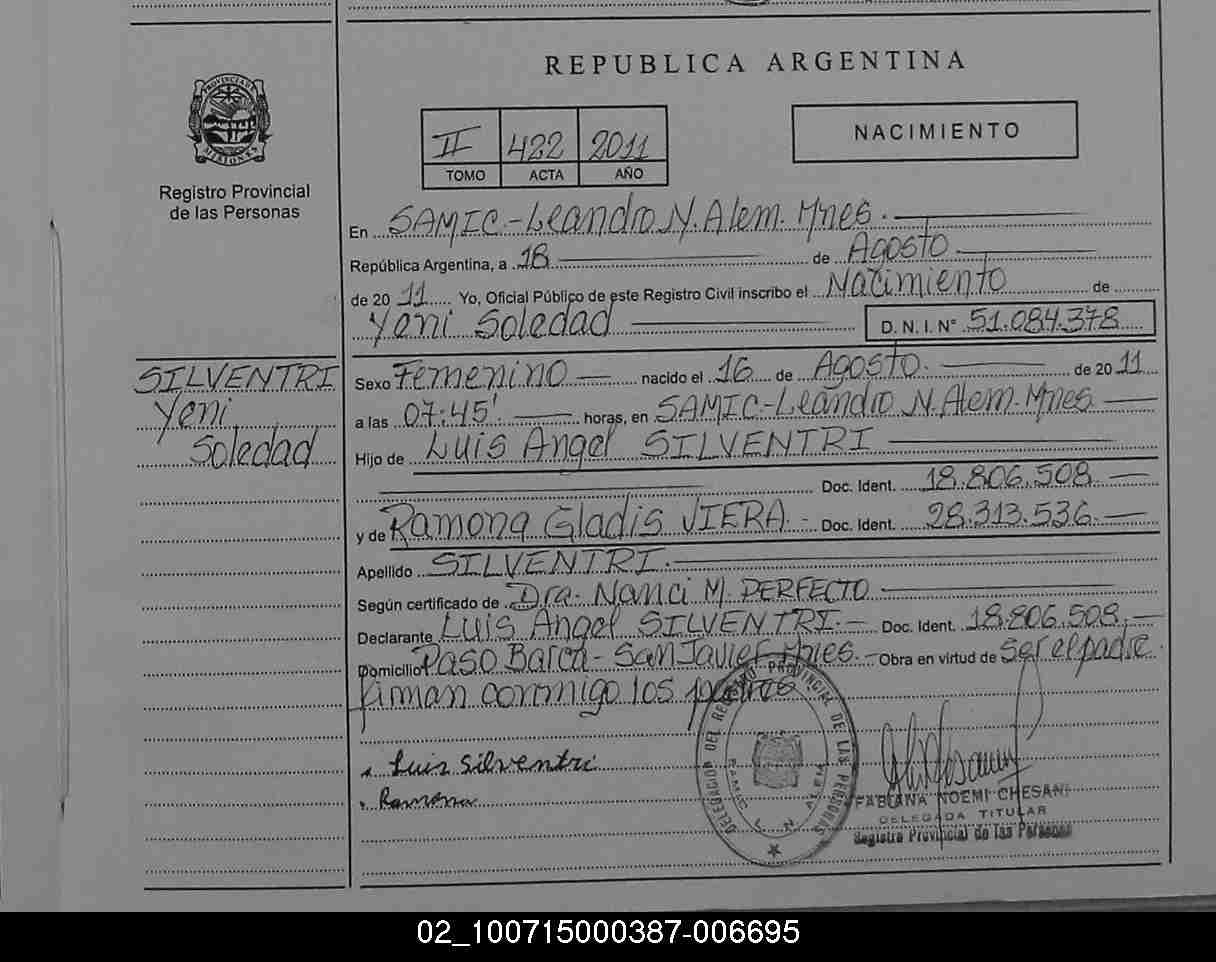 REPUBLICA ARGENTINA
PROVINCIA DE MISIONES
Registro Provincial
de las Personas
II 422 2011
TOMO ACTA AÑO
NACIMIENTO
En SAMIC.-Leandro N. Alem. Mnes.
República Argentina, a 18 de Agosto
de 20 11 Yo, Oficial Público de este Registro Civil inscribo el Nacimiento de
Yeni Soledad D. N. I. N° 51.084.378
SILVENTRI
Yeni
Soledad
Sexo Femenino nacido el 16 de Agosto. de 20 11
a las 07:45'. horas, en SAMIC-Leandro N. Alem-Mnes
Hijo de Luis Angel SILVENTRI
Doc. Ident. 18.806.508.
y de Ramona Gladis VIERA.- Doc. Ident. 28.313.536.
Apellido SILVENTRI.
Según certificado de Dra. Nanci M. PERFECTO
Declarante Luis Angel SILVENTRI.- Doc. Ident. 18.806.508.
Domicilio Paso Barca- San Javier Mnes.- Obra en virtud de Ser el padre.
firman conmigo los padres
Luis Silventri
Ramona
DELEGACION DEL REGISTRO PROVINCIAL DE LAS PERSONAS
SAMIC L. N. ALEM
FABIANA NOEMI CHESANI
DELEGADA TITULAR
Registro Provincial de las Personas
02_100715000387-006695